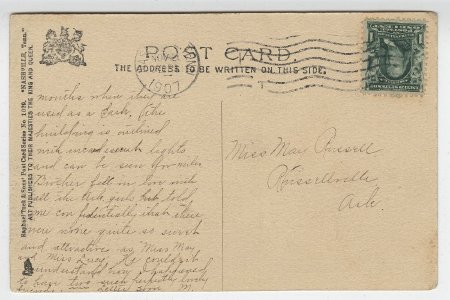 POST CARD.
THE ADDRESS TO BE WRITTEN ON THIS SIDE.
1907
Raphael Tuck & Sons' Post Card Series No. 1089. "NASHVILLE, Tenn."
ART PUBLISHERS TO THEIR MAJESTIES THE KING AND QUEEN.
months when they are
used as a Park. The
building is outlined
with incandescent lights
and can be seen for miles.
Brother fell in love with
all the Ark. girls but told
me confidentially that there
were none quite so sweet
and attractive as Miss May
and Miss Lucy. He couldn't
understand how I happened
to have two such perfectly lovely
friends.
Miss May Russell
Russellville
Ark.